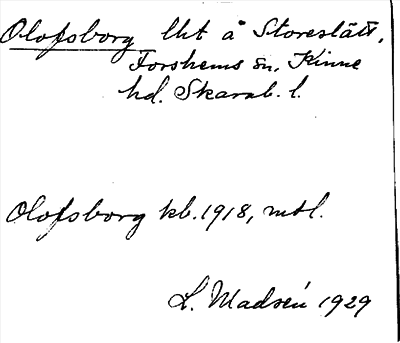 Olofsborg lht å Storeslätt,
Forshems sn, Kinne
hd. Skarab. l.
Olofsborg kb. 1918, mtl.
L. Madsén 1929